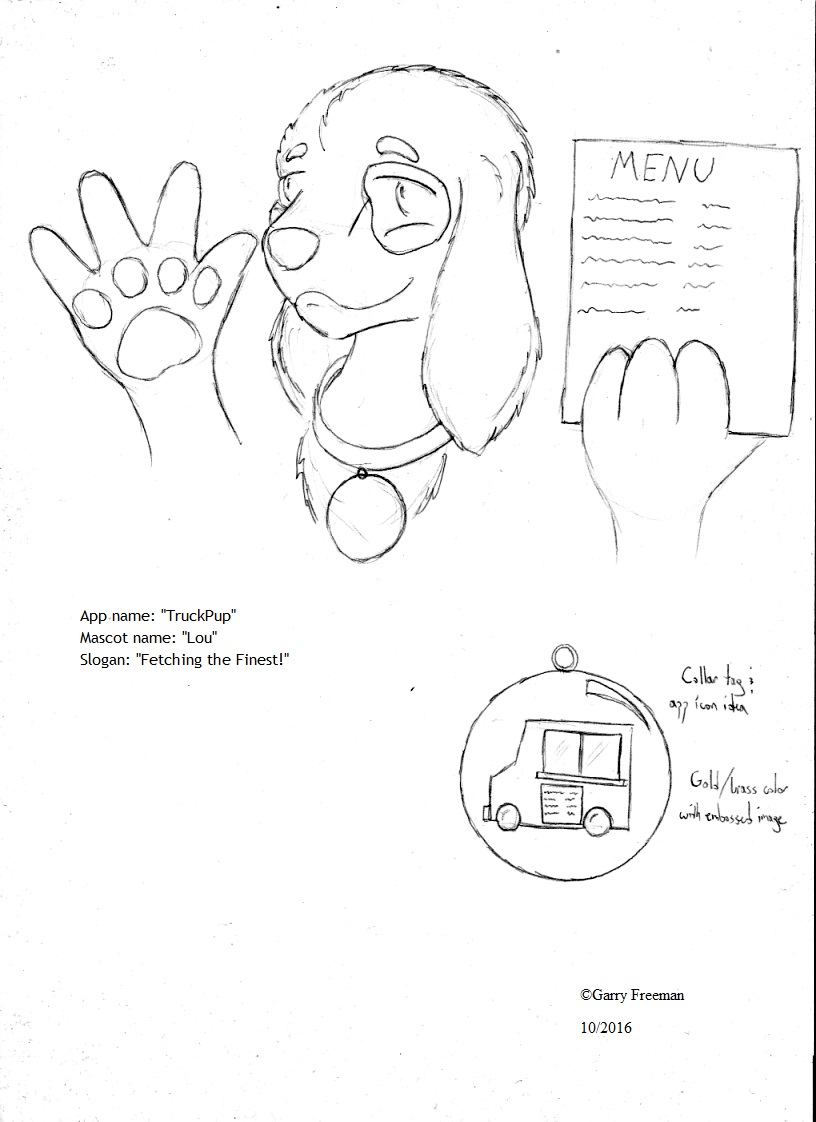 MENU
App name: "TruckPup"
Mascot name: "Lou"
Slogan: "Fetching the Finest!"
Collar tag &
app icon idea
Gold/brass color
with embossed image
©Garry Freeman
10/2016